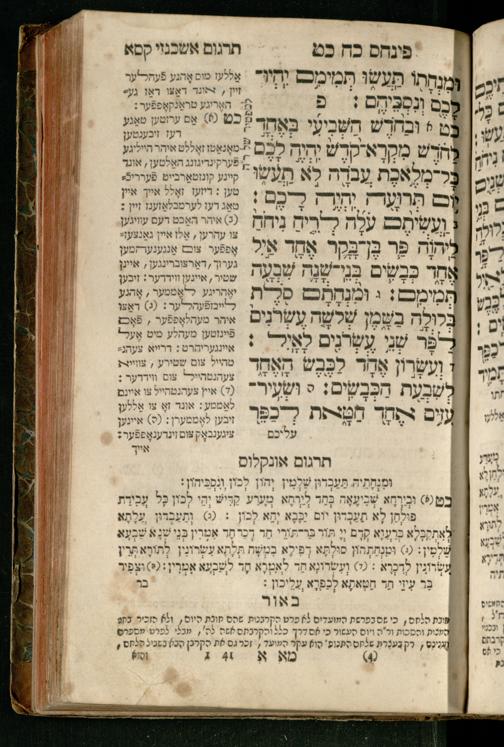 פינחס כח כט
תרגום אשכנזי קסא
וּמִנְחָתוֹ תַּעֲשׂוּ תְּמִימִם יִהְיוּ־
לָכֶם וְנִסְכֵּיהֶם׃ פ
כט א וּבַחֹדֶשׁ הַשְּׁבִיעִי בְּאֶחָד
לַחֹדֶשׁ מִקְרָא־קֹדֶשׁ יִהְיֶה לָכֶם
כָּל־מְלֶאכֶת עֲבֹדָה לֹא תַעֲשׂוּ
יוֹם תְּרוּעָה יִהְיֶה לָכֶם׃
ב וַעֲשִׂיתֶם עֹלָה לְרֵיחַ נִיחֹחַ
לַיהוָֹה פַּר בֶּן־בָּקָר אֶחָד אַיִל
אֶחָד כְּבָשִׂים בְּנֵי־שָׁנָה שִׁבְעָה
תְּמִימִם׃ ג וּמִנְחָתָם סֹלֶת
בְּלוּלָה בַשָּׁמֶן שְׁלֹשָׁה עֶשְׂרֹנִים
לַפָּר שְׁנֵי עֶשְׂרֹנִים לָאָיִל׃
ד וְעִשָּׂרוֹן אֶחָד לַכֶּבֶשׂ הָאֶחָד
לְשִׁבְעַת הַכְּבָשִׂים׃ ה וּשְׂעִיר־
עִזִּים אֶחָד חַטָּאת לְכַפֵּר
עליכם
אללעז מוס אהנע פֿעהלער
זיין, אונד דאצו דאז גע־
האָריגע טראנקאָפּפֿער׃
כט (א) אם ערזטן טאגע
דעז זיבענטען
מאָנאטז זאָללט איהר הייליגע
פֿערקינדיגונג האלטען, אונד
קיינע קונזטארבייט פֿערריכ־
טען׃ דיזער זאָלל אייך איין
טאג דעז לערמבלאזענז זיין׃
(ב) איהר האבט דעם עוויגען
צו עהרען, אלז איין גאנצעז־
אָפּפֿער צום אנגענעהמען
גערוך, דארצוברינגען, איינן
שטיר, איינען ווידדער׃ זיבען
יאָהריגע לאָממער, אָהנע
לייבזפֿעהלער׃ (ג) דאצו
איהר מעהלאָפּפֿער, פֿאָם
פֿיינזטען מעהלע מיט אָעל
איינגעריהרט׃ דרייא צעהנ־
טהייל צום שטירע, צווייא
צעהנטהייל צום ווידדער׃
(ד) איין צעהנטהייל צו איינם
לאַממע׃ אונד זאָ צו אללען
זיבען לאָממערן׃ (ה) איינען
ציגענבאָק צום זינדענאָפּפֿער׃
אייך
תרגום אונקלוס
וּמִנְחָתֵיהּ תַּעְבְּדוּן שַׁלְמִין יְהוֹן לְכוֹן וְנִסְכֵּיהוֹן׃
כט (א) וּבְיַרְחָא שְׁבִיעָאָה בְּחַד לְיַרְחָא מְעָרַע קַדִּישׁ יְהֵי לְכוֹן כָּל עֲבִידַת
פּוּלְחַן לָא תַעְבְּדוּן יוֹם יַבָּבָא יְהֵא לְכוֹן׃ (ב) וְתַעְבְּדוּן עֲלָתָא
לְאִתְקַבָּלָא בְרַעֲוָא קֳדָם יְיָ תּוֹר בַּר־תּוֹרֵי חַד דְּכַר חַד אִמְּרִין בְּנֵי שְׁנָא שַׁבְעָא
שַׁלְמִין׃ (ג) וּמִנְחָתְהוֹן סוּלְתָּא דְּפִילָא בִמְשַׁח תְּלָתָא עֶשְׂרוֹנִין לְתוֹרָא תְּרֵין
עֶשְׂרוֹנִין לְדִכְרָא׃ (ד) וְעֶשְׂרוֹנָא חַד לְאִמְּרָא חַד לְשַׁבְעָא אִמְּרִין׃ (ה) וּצְפִיר
בַּר עִזֵּי חַד חַטָּאתָא לְכַפָּרָא עֲלֵיכוֹן׃
בר
באור
הקרבנות שהם חובת היום, ולא הזכיר בחג
המצות והסכות ור״ה ויום העשור כי אם דרך כלל והקרבתם אשה לה׳,
(4) מא א 141 והוא